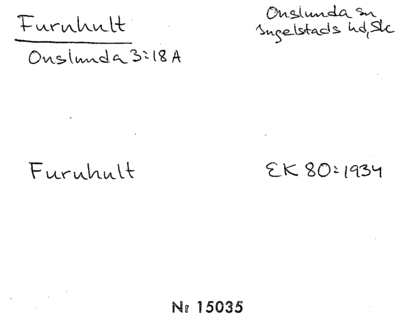 Furuhult
Onslunda sn
Ingelstads hd, Sk
Onslunda 3:18 A
Furuhult
EK 80:1934
Nr 15035